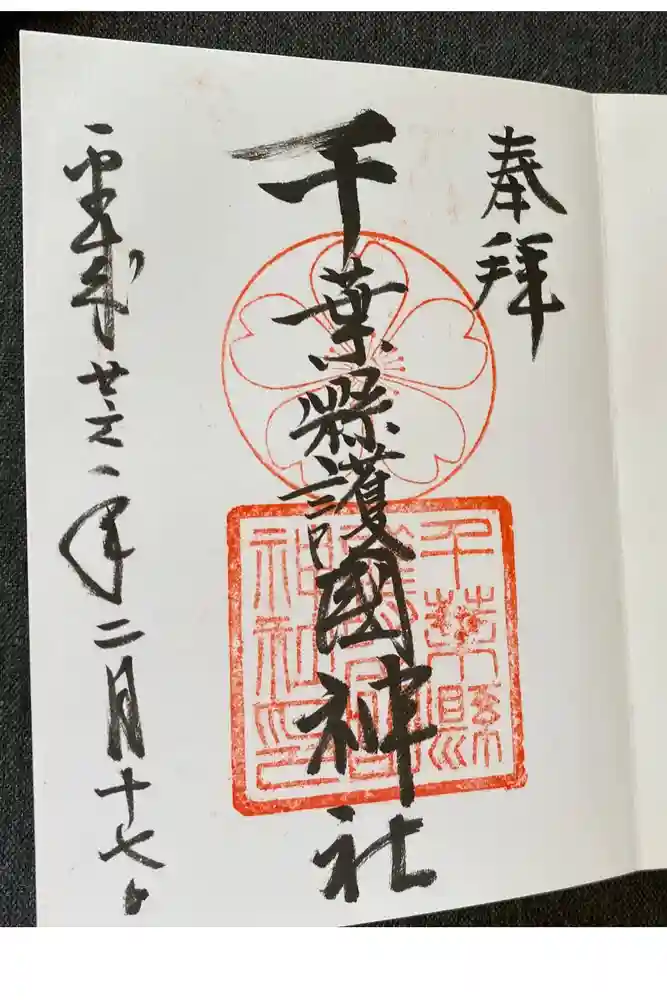 奉拝
千葉縣護國神社
平成廿六年二月十七日
千葉縣
護國
神社印